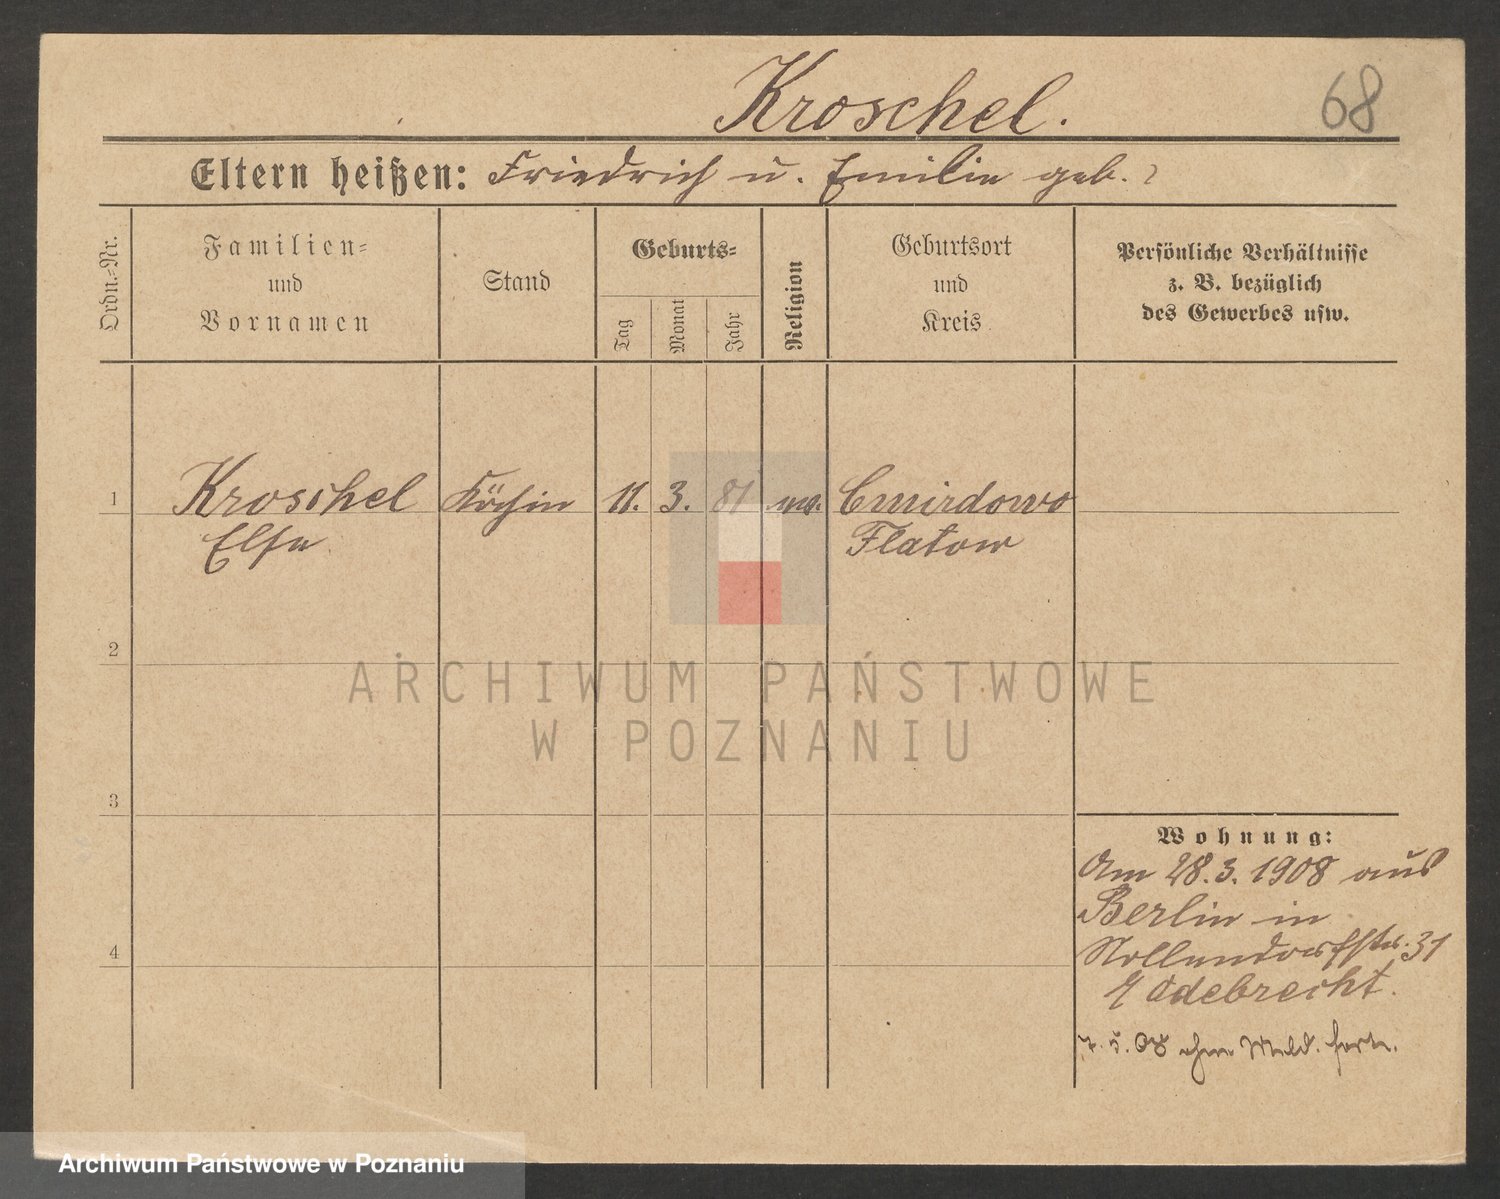 Kroschel.
68
Eltern heißen: Friedrich u. Emilie geb. ?
Ordn.=Nr.
Familien=
und
Vornamen
Stand
Geburts=
Tag
Monat
Jahr
Religion
Geburtsort
und
Kreis
Persönliche Verhältnisse
z. B. bezüglich
des Gewerbes usw.
1 Kroschel Köchin 11. 3. 81 ev. Cmirdowo
Else Flatow
2
ARCHIWUM PAŃSTWOWE
W POZNANIU
3
Wohnung:
Am 28.3.1908 aus
Berlin in
Nollendorfstr. 31
Odebrecht.
4
7. 5. 08 ohne Meld. fort.
Archiwum Państwowe w Poznaniu